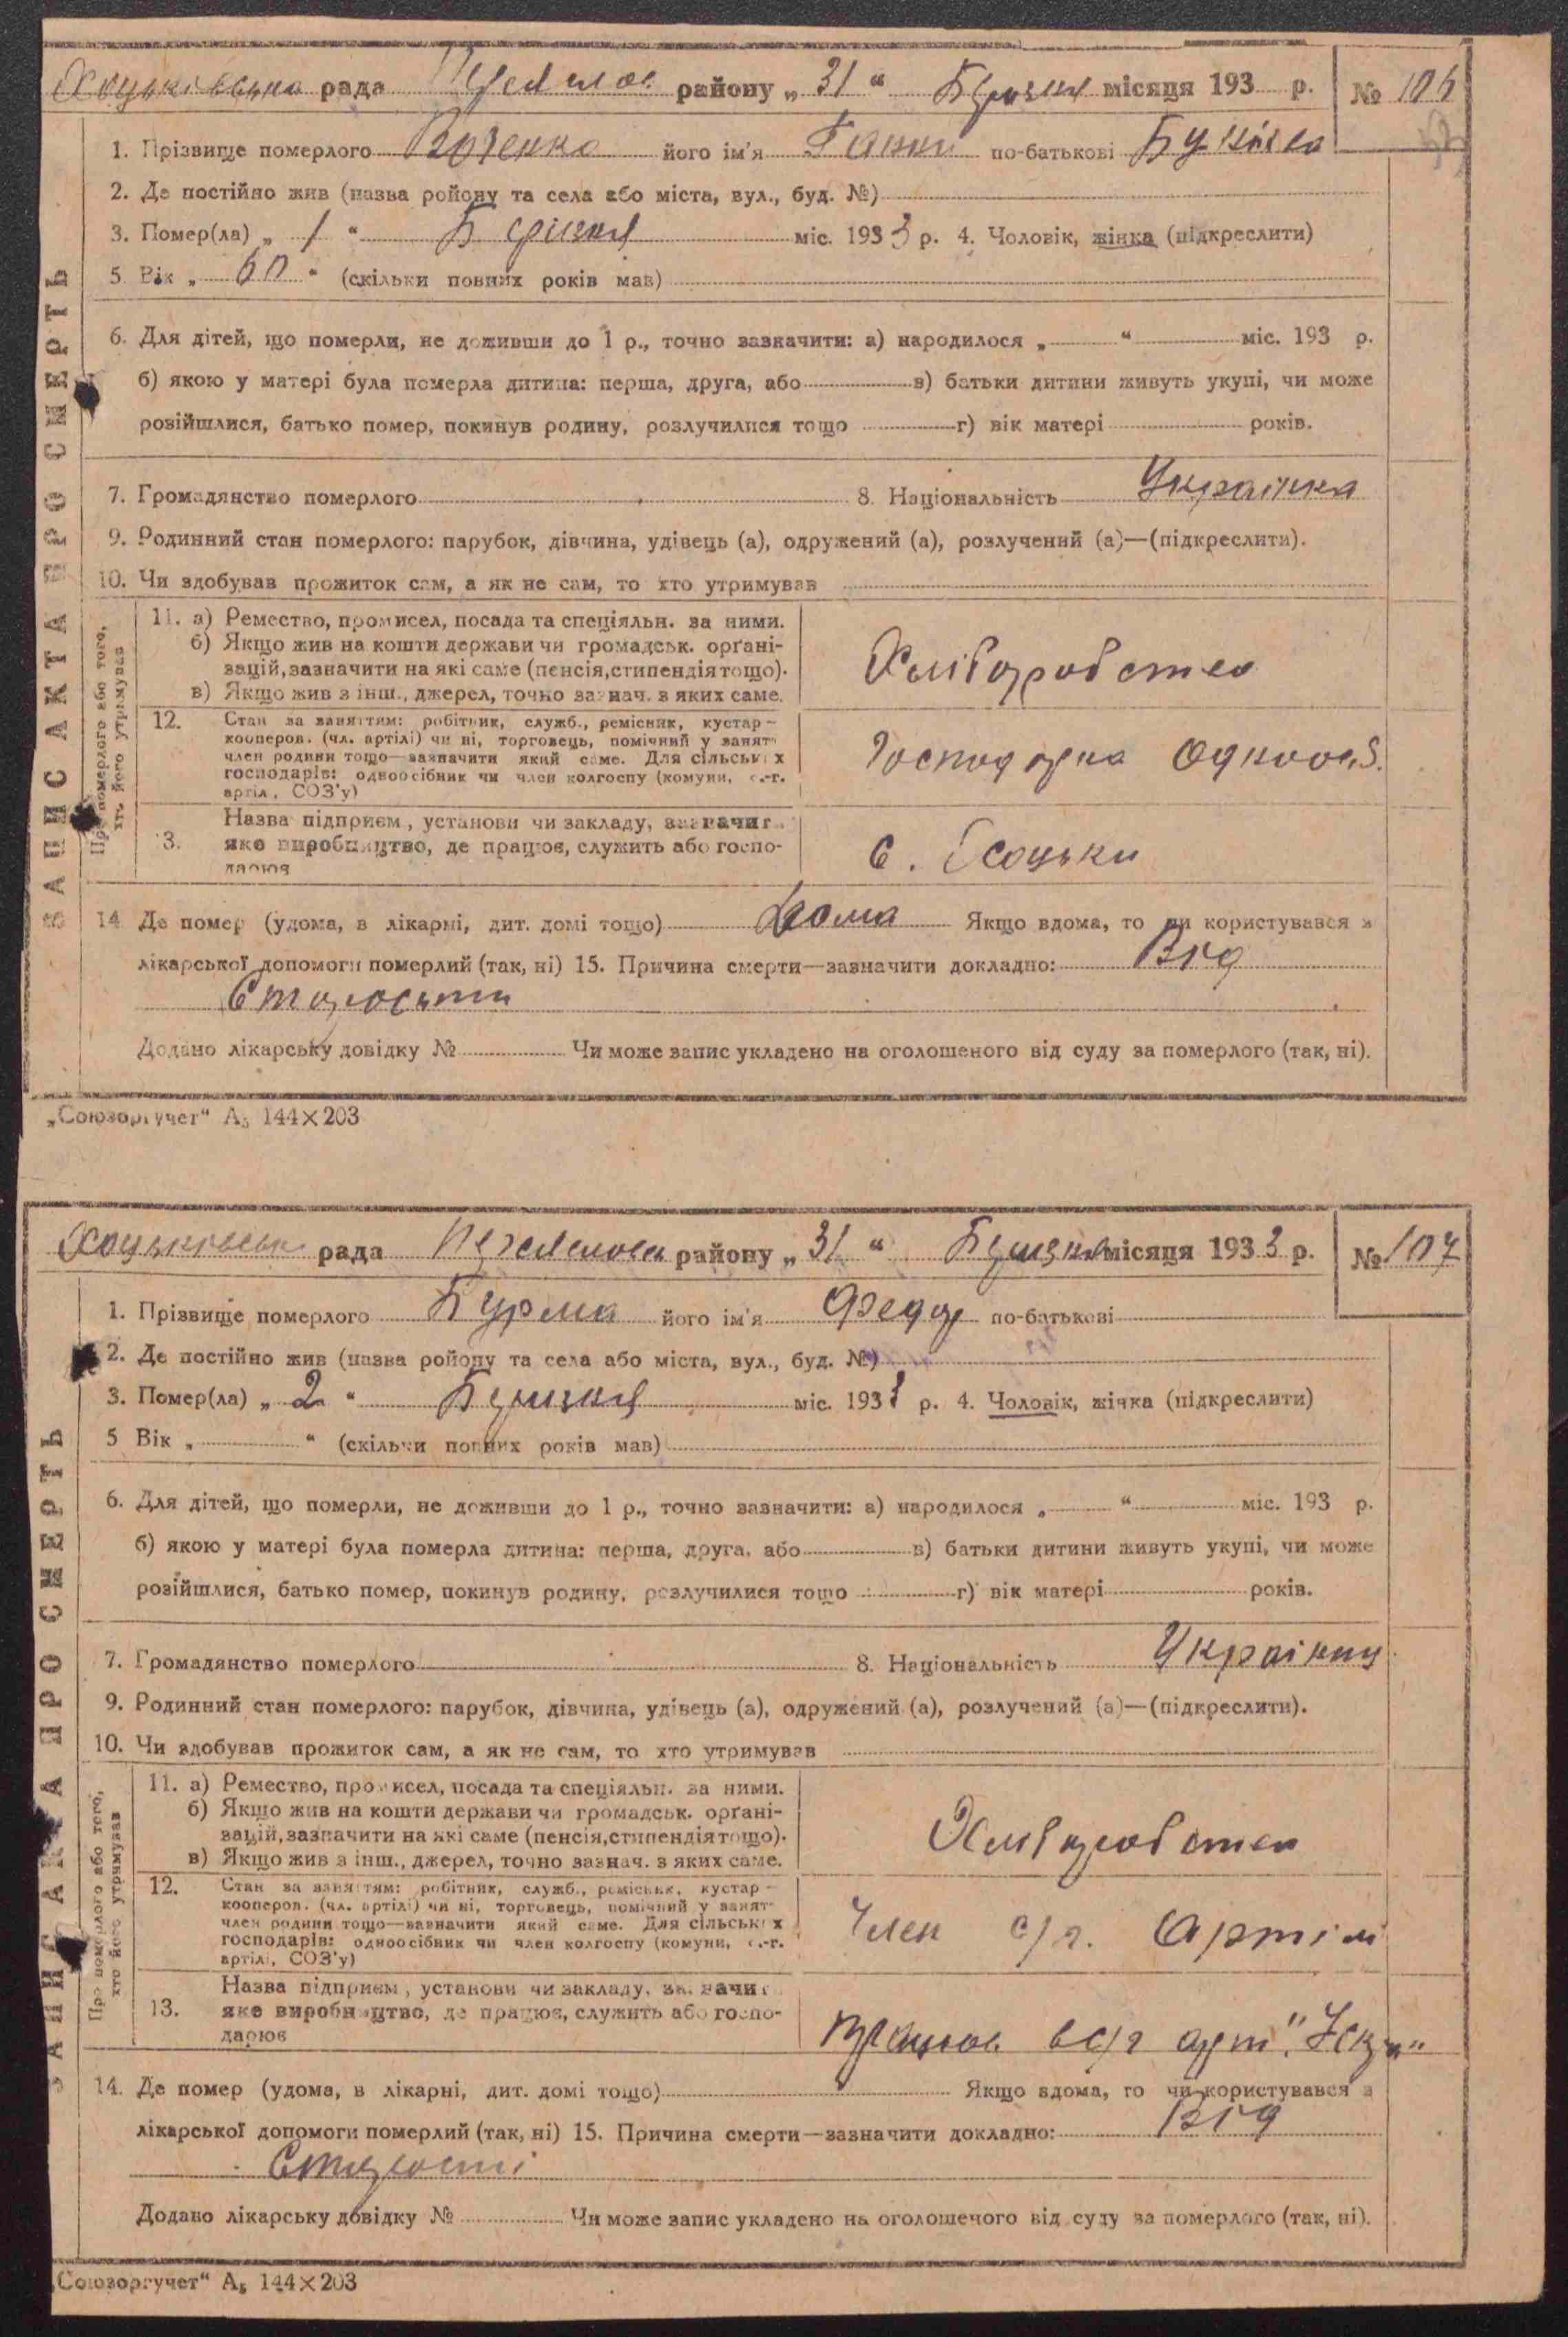 Хоцьківська рада Переяслов. району „ 31 “ Березня місяця 193 р. № 106
1. Прізвище померлого його ім'я Ганни по-батькові
2. Де постійно жив (назва району та села або міста, вул., буд. №)
3. Помер(ла) „ 1 “ Березня міс. 1933 р. 4. Чоловік, жінка (підкреслити)
5 Вік „ 60 “ (скільки повних років мав)
6. Для дітей, що померли, не доживши до 1 р., точно зазначити: а) народилося „ “ міс. 193 р.
б) якою у матері була померла дитина: перша, друга, або в) батьки дитини живуть укупі, чи може
розійшлися, батько помер, покинув родину, розлучилися тощо г) вік матері років.
7. Громадянство померлого 8. Національність Українка
9. Родинний стан померлого: парубок, дівчина, удівець (а), одружений (а), розлучений (а)—(підкреслити).
10. Чи здобував прожиток сам, а як не сам, то хто утримував
ЗАПИС АКТА ПРО СМЕРТЬ
Про померлого або того,
хто його утримував
11. а) Ремество, промисел, посада та спеціяльн. за ними.
б) Якщо жив на кошти держави чи громадськ. орґані-
зацій, зазначити на які саме (пенсія, стипендія тощо).
в) Якщо жив з інш., джерел, точно зазнач. з яких саме.
Хліборобство
12. Стан за заняттям: робітник, служб., ремісник, кустар—
кооперов. (чл. артілі) чи ні, торговець, помічний у занят.
член родини тощо—зазначити який саме. Для сільських
господарів: одноосібник чи член колгоспу (комуни, с.-г.
артіл, СОЗ'у)
Господарка Одноос.
13. Назва підприєм., установи чи закладу, зазначит.
яке виробництво, де працює, служить або госпо-
дарює
С. Хоцьки
14 Де помер (удома, в лікарні, дит. домі тощо) Дома Якщо вдома, то чи користувався з
лікарської допомоги померлий (так, ні) 15. Причина смерти—зазначити докладно: Від
Старости
Додано лікарську довідку № Чи може запис укладено на оголошеного від суду за померлого (так, ні).
„Союзоргучет“ А₅ 144×203
Хоцьківськ рада Переяслов району „ 31 “ Березня місяця 1933 р. № 107
1. Прізвище померлого Бурма його ім'я Федор по-батькові
2. Де постійно жив (назва району та села або міста, вул., буд. №)
3. Помер(ла) „ 2 “ Березня міс. 1933 р. 4. Чоловік, жінка (підкреслити)
5 Вік „ “ (скільки повних років мав)
6. Для дітей, що померли, не доживши до 1 р., точно зазначити: а) народилося „ “ міс. 193 р.
б) якою у матері була померла дитина: перша, друга, або в) батьки дитини живуть укупі, чи може
розійшлися, батько помер, покинув родину, розлучилися тощо г) вік матері років.
7. Громадянство померлого 8. Національність Українець
9. Родинний стан померлого: парубок, дівчина, удівець (а), одружений (а), розлучений (а)—(підкреслити).
10. Чи здобував прожиток сам, а як не сам, то хто утримував
ЗАПИС АКТА ПРО СМЕРТЬ
Про померлого або того,
хто його утримував
11. а) Ремество, промисел, посада та спеціяльн. за ними.
б) Якщо жив на кошти держави чи громадськ. орґані-
зацій, зазначити на які саме (пенсія, стипендія тощо).
в) Якщо жив з інш., джерел, точно зазнач. з яких саме.
Хліборобство
12. Стан за заняттям: робітник, служб., ремісник, кустар—
кооперов. (чл. артілі) чи ні, торговець, помічний у занят.
член родини тощо—зазначити який саме. Для сільських
господарів: одноосібник чи член колгоспу (комуни, с.-г.
артілі, СОЗ'у)
Член с/г. Артілі
13. Назва підприєм., установи чи закладу, зазначит
яке виробництво, де працює, служить або госпо-
дарює
працював в с/г арт. „Іскра“
14. Де помер (удома, в лікарні, дит. домі тощо) Якщо вдома, то чи користувався з
лікарської допомоги померлий (так, ні) 15. Причина смерти—зазначити докладно: Від
Старості
Додано лікарську довідку № Чи може запис укладено на оголошеного від суду за померлого (так, ні).
„Союзоргучет“ А₅ 144×203